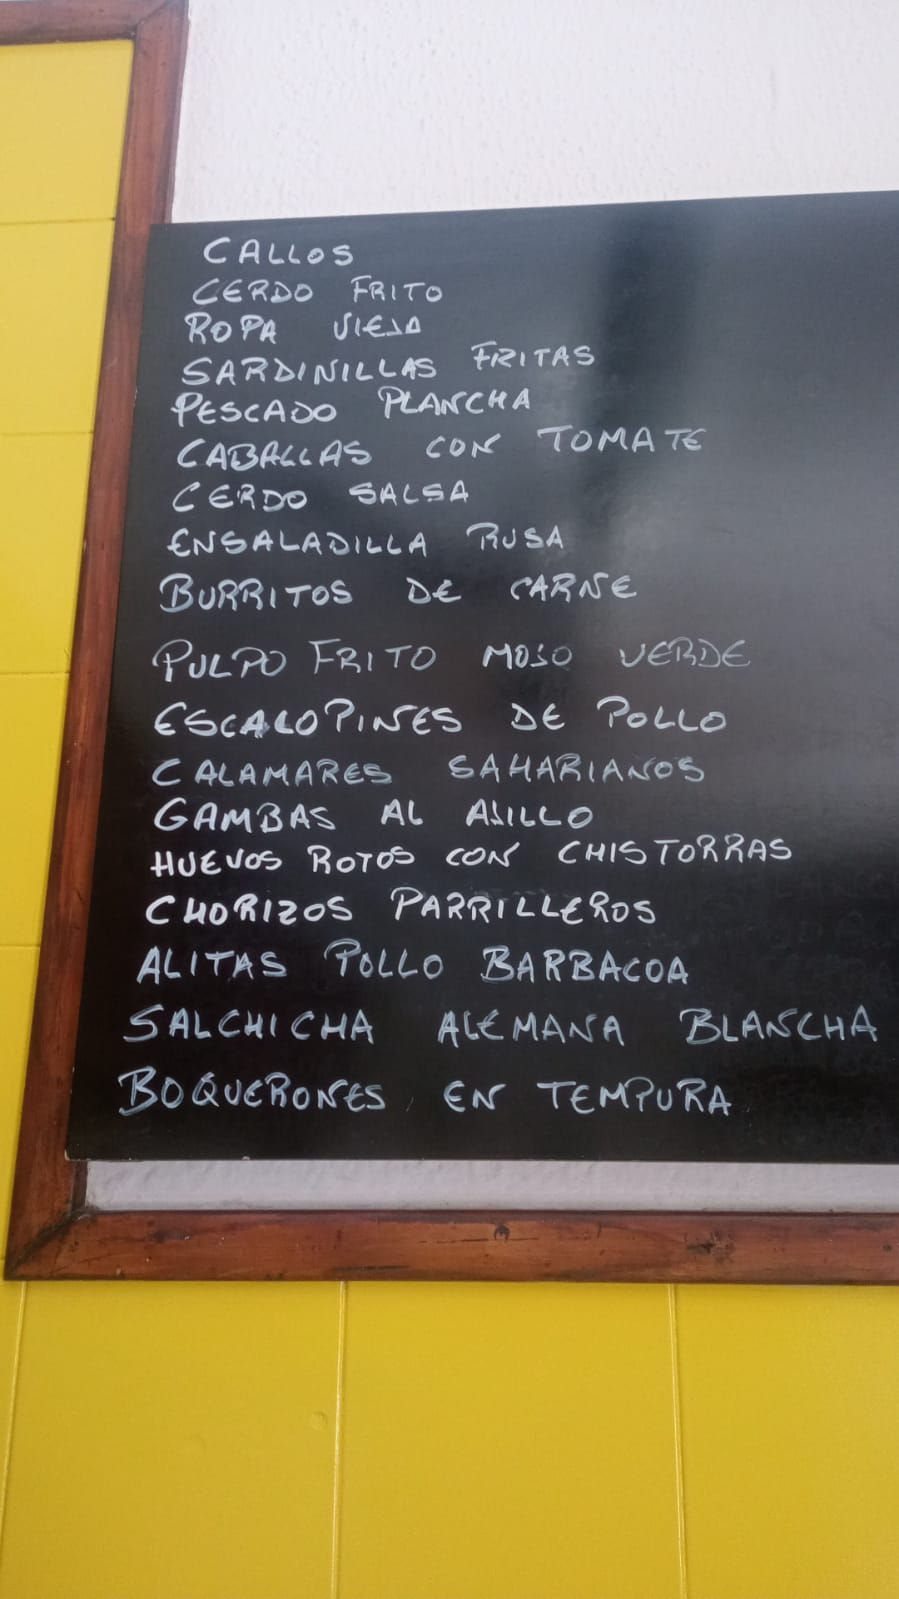 CALLOS
CERDO FRITO
ROPA VIEJA
SARDINILLAS FRITAS
PESCADO PLANCHA
CABALLAS CON TOMATE
CERDO SALSA
ENSALADILLA RUSA
BURRITOS DE CARNE
PULPO FRITO MOJO VERDE
ESCALOPINES DE POLLO
CALAMARES SAHARIANOS
GAMBAS AL AJILLO
HUEVOS ROTOS CON CHISTORRAS
CHORIZOS PARRILLEROS
ALITAS POLLO BARBACOA
SALCHICHA ALEMANA BLANCHA
BOQUERONES EN TEMPURA